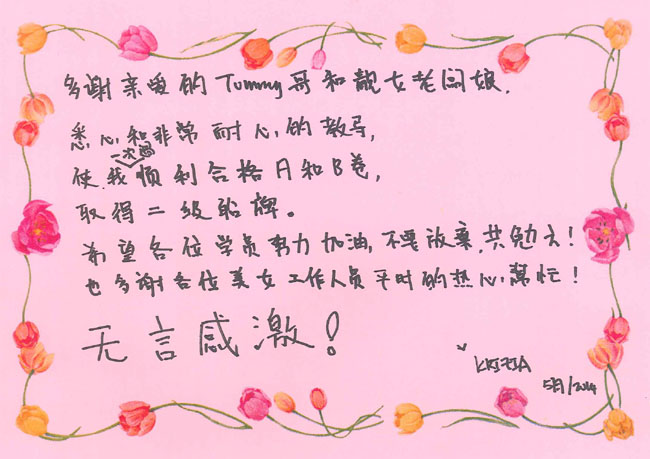 多谢亲爱的Tummy哥和靓女老闆娘,
悉心和非常耐心的教导,
使我一次過顺利合格A和B卷,
取得二级船牌。
希望各位学员努力加油,不要放棄,共勉之!
也多谢各位美女工作人员平时的热心幫忙!
无言感激!
KRIZIA
5月/2014